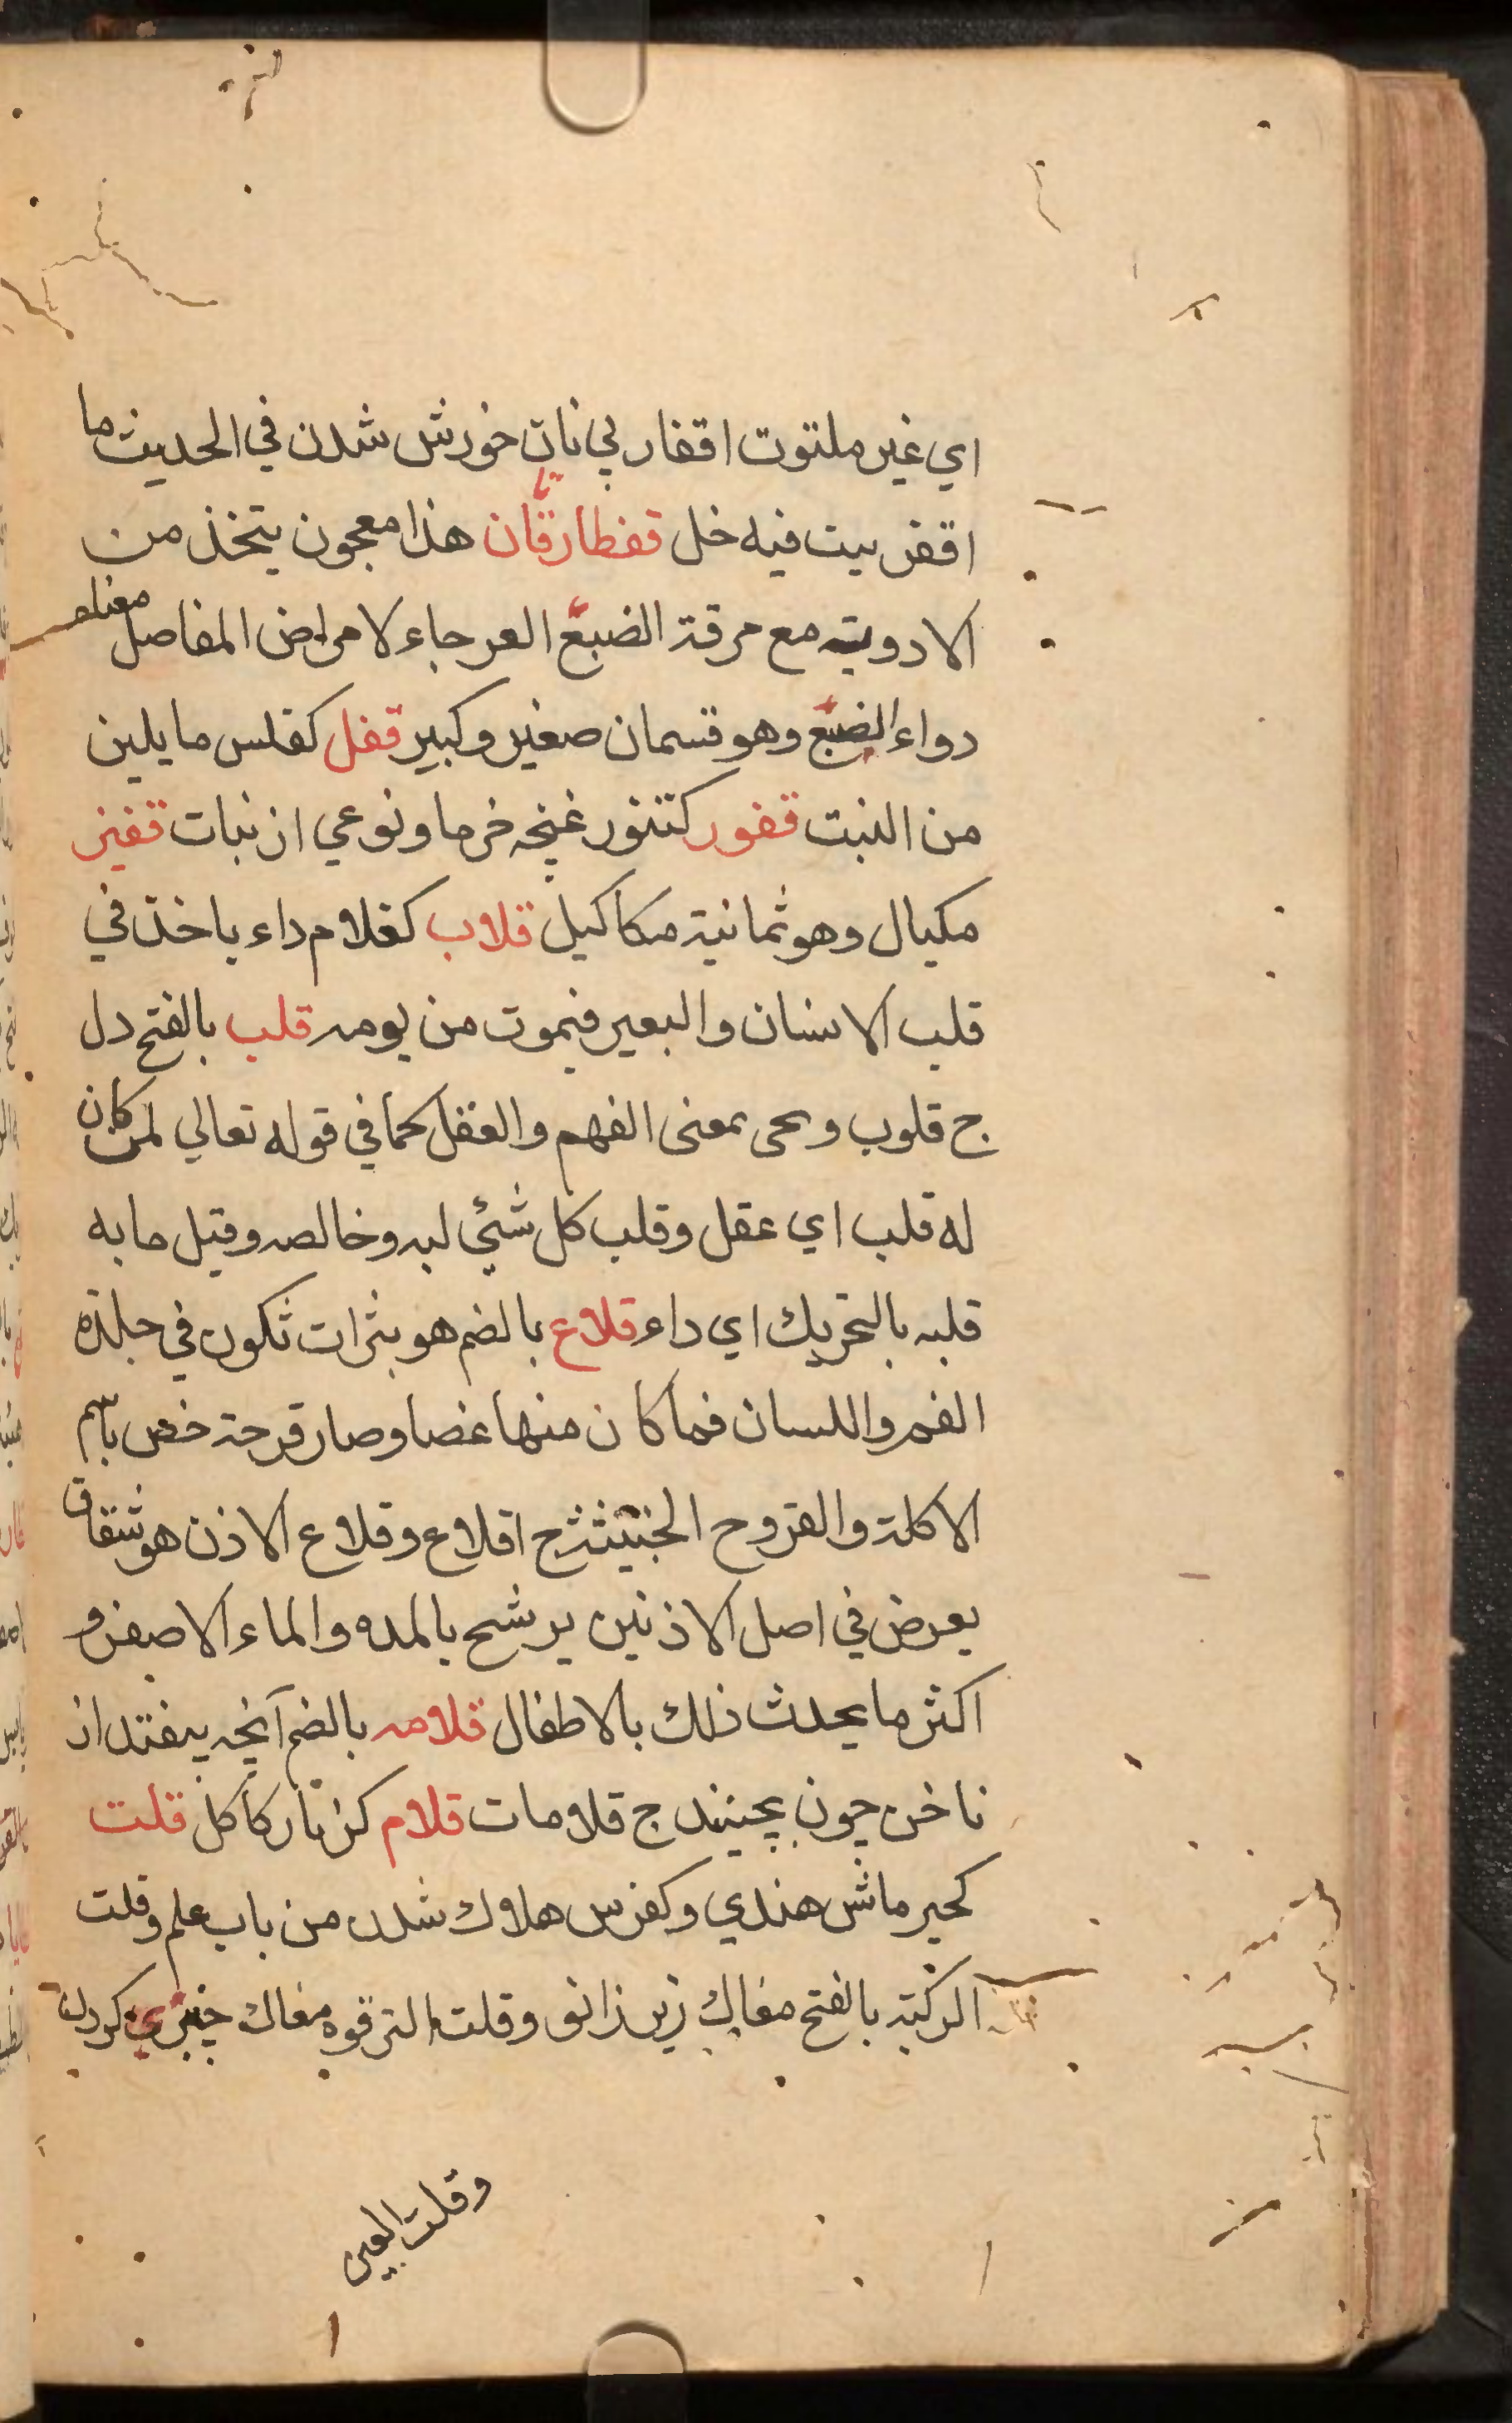 اي غير ملتوت اقفار بي نان خورش شدن في الحديث ما
اقفر بيت فيه خل قفطارقان هذا معجون يتخذ من
الادويته مع مرقة الضبع العرجاء لامراض المفاصل معناه
دواء الضبع وهو قسمان صغير وكبير قفل كفلس ما يلين
من النبت قفور كتنور غنچه خرما ونوعي از نبات قفيز
مكيال وهو ثمانية مكاكيل قلاب كغلام داء ياخذ في
قلب الانسان والبعير فيموت من يومه قلب بالفتح دل
ج قلوب وىحى بمعنى الفهم والعقل كما في قوله تعالي لمن كان
له قلب اي عقل وقلب كل شئي لبه وخالصه وقيل ما به
قلبه بالتحريك اي داء قلاع بالضم هو بثرات تكون في جلدة
الفم واللسان فما كان منها غضا وصار قرحة خص باسم
الاكلة والقروح الخبيثة ج اقلاع وقلاع الاذن هو شقاق
يعرض في اصل الاذنين يرشح بالمده والماء الاصفر و
اكثر ما يحدث ذلك بالاطفال قلامه بالضم آنچه بيفتد از
ناخن چون بچينند ج قلامات قلام كزنار كاكل قلت
كحير ماش هندي وكفرس هلاك شدن من باب علم وقلت
الركبة بالفتح مغاك زير زانو وقلت الترقوه مغاك چنبري گردن
وقلت العين